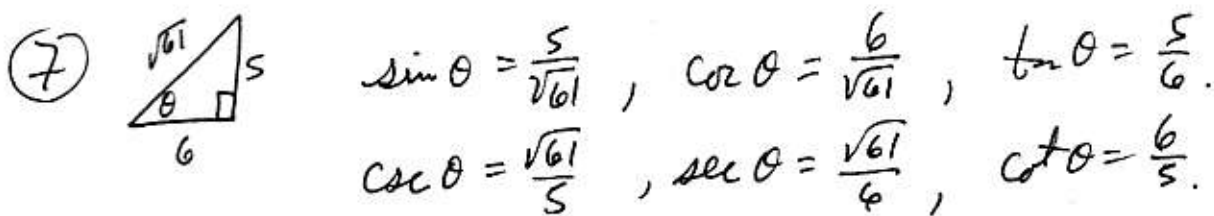 ⑦ √61 5 θ 6
sin θ = 5/√61 , cos θ = 6/√61 , tan θ = 5/6.
csc θ = √61/5 , sec θ = √61/6 , cot θ = 6/5.